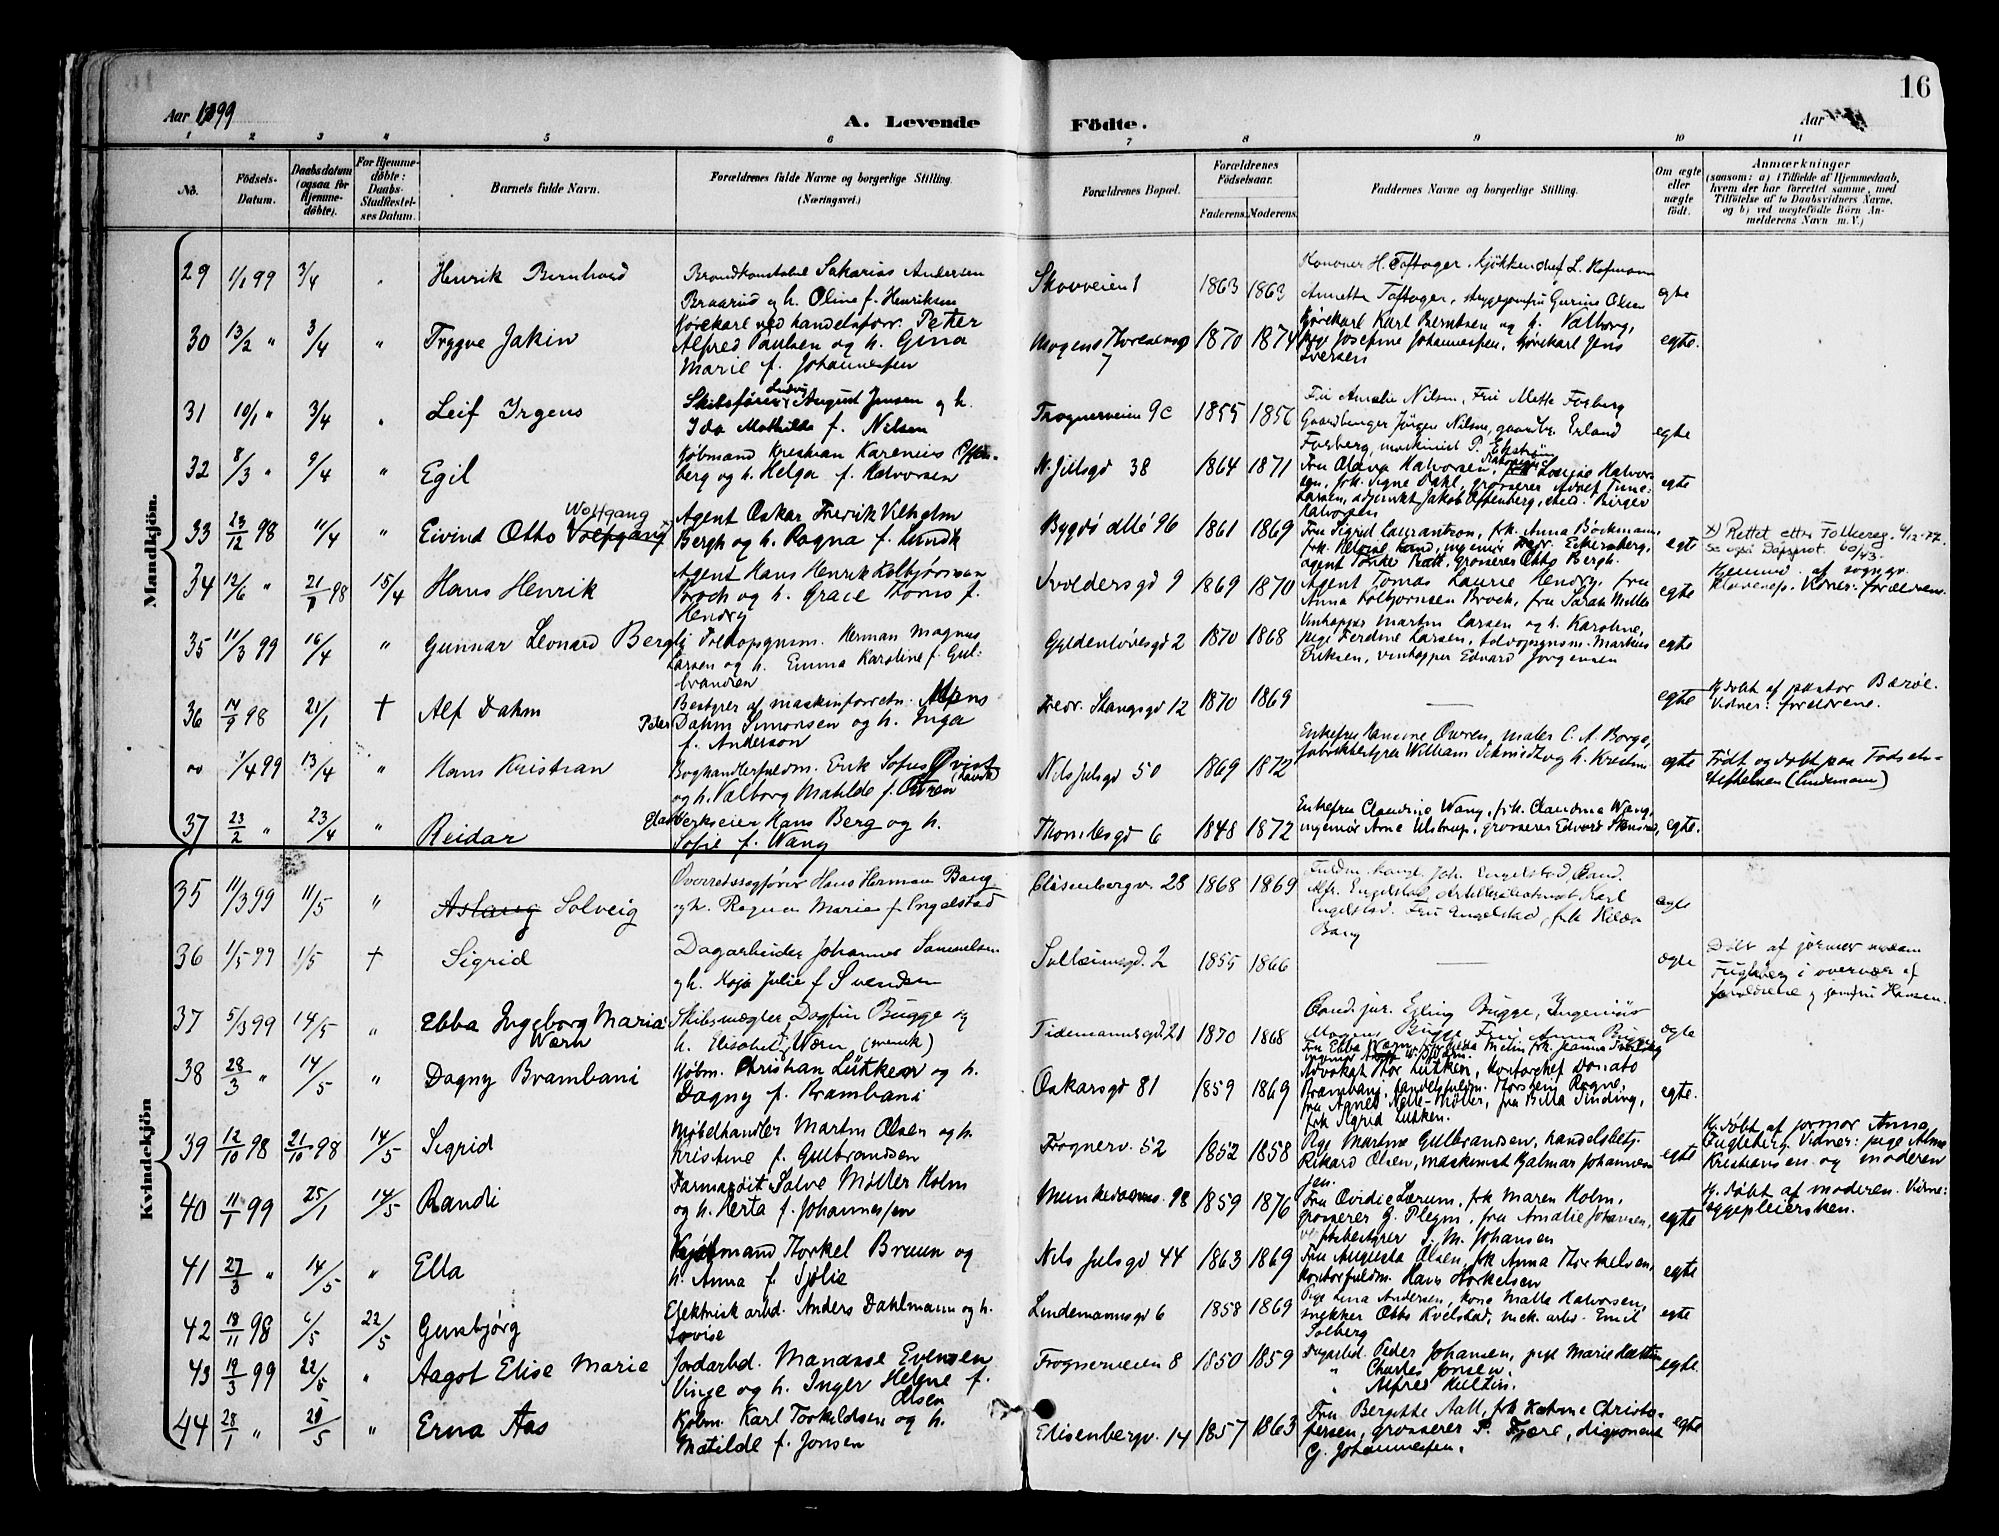 16
Aar 1899
A. Levende Födte.
Aar
1 2 3 4 5 6 7 8 9 10 11
No.
Födsels-Datum.
Daabsdatum (ogsaa for Hjemmedöbte).
For Hjemmedöbte: Daabs-Stadfæstelses Datum.
Barnets fulde Navn.
Forældrenes fulde Navne og borgerlige Stilling. (Næringsvei.)
Forældrenes Bopæl.
Forældrenes Födselsaar.
Faderens. Moderens.
Faddernes Navne og borgerlige Stilling.
Om ægte eller uægte födt.
Anmærkninger (saasom: a) i Tilfælde af Hjemmedaab, hvem der har forrettet samme, med Tilföielse af to Daabsvidners Navne, og b) ved uægtefödte Börn Anmelderens Navn m. V.)
Mandkjön.
29 1/1 99 3/4 " Henrik Bernhard
Brandkonstabel Sakarias Andersen
Braarud og h. Oline f. Henriksen
Skovveien 1 1863 1863
Annette Toftager, strygejomfru Gurine Olsen
egte
30 13/2 " 3/4 " Trygve Jakin
Kjørekarl ved handelsforr. Peter
Alfred Paulsen og h. Gina
Marie f. Johannessen
Mogens Thoresensg 7 1870 1874
Kjørekarl Karl Berntsen og h. Valborg,
Josefine Johannessen, kjørekarl Jens
Iversen
egte.
31 10/1 " 3/4 " Leif Irgens
Skibsfører Ludvig August Jensen og h.
Ida Mathilde f. Nilsen
Frognerveien 9c 1855 1856
Fru Amalie Nilsen, Fru Mette Forberg
Gaardbruger Jörgen Nilsen, gaardbr. Erland
Forberg, maskinist P. Ekstrøm
egte
32 8/3 " 9/4 " Egil
Kjøbmand Kristian Karenius Offenberg og h. Helga f. Halvorsen
N. Julsgd 38 1864 1871
Fru Olava Halvorsen, Louise Halvorsen, frk. Signe Dahl, grosserer Adolf Tune-Larsen, adjunkt Jakob Offenberg, stud. Birger
Halvorsen
egte
33 23/12 98 11/4 " Eivind Otto Wolfgang Volfgang
Agent Oskar Fredrik Vilhelm
Bergh og h. Ragna f. Lundh
Bygdö allé 96 1861 1869
Fru Sigrid Laurantzon, frk. Anna Böckmann,
agent Rath, grosserer Otto Bergh.
egte
x) Rettet efter Folkereg. 6/12-77.
Se også Dåpsprot. 60/43.
34 12/6 " 21/8 98 15/4 Hans Henrik
Agent Hans Henrik Kolbjørnsen
Broch og h. Grace Thoms f.
Hendry
1869 1870
Agent Tomas Laurie Hendry, fru
Anna Kolbjørnsen Broch, fru Sarah Møller
egte
Hjemmed. af sogngpr.
Klavenes. Vidner: forældrene.
35 11/3 99 16/4 " Gunnar Leonard Berg
Toldopsynsm. Herman Magnus
Larsen og h. Emma Karoline f. Gulbrandsen
Gyldenløvesgd 2 1870 1868
Vinhapper Martin Larsen og h. Karoline,
pige Ferdine Larsen, toldopsynsm. Markus
Eriksen, vinhapper Edvard Jörgensen
egte
36 14/9 98 21/1 † Alf Dahm
Bestyrer af maskinforretn. Mons
Peder Dahm Simonsen og h. Inga
f. Anderson
Fredr. Stangsgd 12 1870 1869
—
egte
Hj. døbt af pastor Barøe.
Vidner: forældrene.
1/4 99 13/4 " Hans Kristian
Boghandlerfuldm. Erik Sofus Qvist (dansk)
og h. Valborg Matilde f. Owren
Nils Julsgd 50 1869 1872
Enkefru Hansine Owren, maler C. A. Borge,
fabrikbestyrer William Schmidt og h. Kristine
egte
Født og døbt paa Fødselsstiftelsen (Lindemann)
37 23/2 " 23/4 " Reidar
Glasverkseier Hans Berg og h.
Sofie f. Wang
Thomlesgd 6 1848 1872
Enkefru Claudine Wang, frk. Claudine Wang,
ingeniør Arne Ulstrup, grosserer Edvard
egte.
Kvindekjön
35 11/3 99 11/5 " Aslaug Solveig
Overretssagfører Hans Herman Bang
og h. Ragna Marie f. Engelstad
Elisenbergv. 28 1868 1869
Fuldm. Joh. Engelstad, Cand.
Alfr. Engelstad, Karl
Engelstad. Fru Engelstad, frk Hilda
Bang
egte
36 1/5 99 1/5 † Sigrid
Dagarbeider Johannes Samuelsen
og h. Maja Julie f Svendsen
Sulleimsgd. 2 1855 1866
—
ægte
Døbt af jormor madam
Fugleberg i overvær af
forældrene og jomfru Hansen.
37 5/3 99 14/5 " Ebba Ingeborg Maria
Wærn
Skibsmægler Dagfin Bugge og
h. Elisabeth Wærn (svensk)
Tidemannsgd. 21 1870 1868
Cand. jur. Erling Bugge, Ingeniør
Mogens Bugge, Fru Anna Bugge
Fru Ebba Wærn
ægte
38 28/3 " 14/5 " Dagny Brambani
Kjøbm. Christian Lütken og h.
Dagny f. Brambani
Oskarsgd 81 1859 1869
Advokat Thor Lütken, kontorchef Donato
Brambani, handelsfuldm. Thorstein Rogne,
fru Agnes Møller, fru Billa Sinding,
frk Sigrid Lütken.
egte.
39 12/10 98 21/10 98 14/5 Sigrid
Møbelhandler Martin Olsen og h.
Kristine f. Gulbrandsen
Frognerv. 52 1852 1858
Pige Martine Gulbrandsen, handelsbetj.
Rikard Olsen, maskinist Hjalmar Johannessen.
egte
Hj. døbt af jormor Anna
Fugleberg. Vidner: pige Alma
Kristiansen og moderen
40 11/1 99 25/1 14/5 Randi
Farmasöit Salve Møller Holm
og h. Herta f. Johannessen
Munkedamsv. 98 1859 1876
Fru Ovidie Lærum, frk Maren Holm,
grosserer G. Pleym, fru Amalie Johansen,
J. M. Johansen
egte
Hj. døbt af moderen. Vidne:
sygepleiersken.
41 27/3 " 14/5 " Ella
Kjøbmand Thorkel Bruun og
h. Anna f. Sjølie
Nils Julsgd 44 1863 1869
Fru Augusta Olsen, frk Anna Thorkelsen,
kontorfuldm. Hans Thorkelsen
egte
42 18/11 98 6/5 22/5 Gunbjörg
Elektrisk arbd. Anders Dahlmann og h.
Lovise
Lindemannsgd 6 1858 1869
Pige Lina Andersen, kone Matla Halvorsen,
snekker Otto Kvelstad, mek. arbd. Emil
Solberg
egte
43 19/3 99 22/5 " Aagot Elise Marie
Jordarbd. Manasse Evensen
Vinge og h. Inger Helene f.
Olsen
Frognerveien 8 1850 1859
Dagarbd. Peder Johansen, pige Marie
" Charles Jonsen
" Alfred Hultin.
egte.
44 28/1 " 28/5 " Erna Aas
Kjøbm. Karl Torkildsen og h.
Matilde f. Jonsen
Elisenbergv. 14 1857 1863
Fru Bergitte Aall, frk Katrine Christofersen, grosserer P. Fjære, disponent
G. Johannessen.
egte